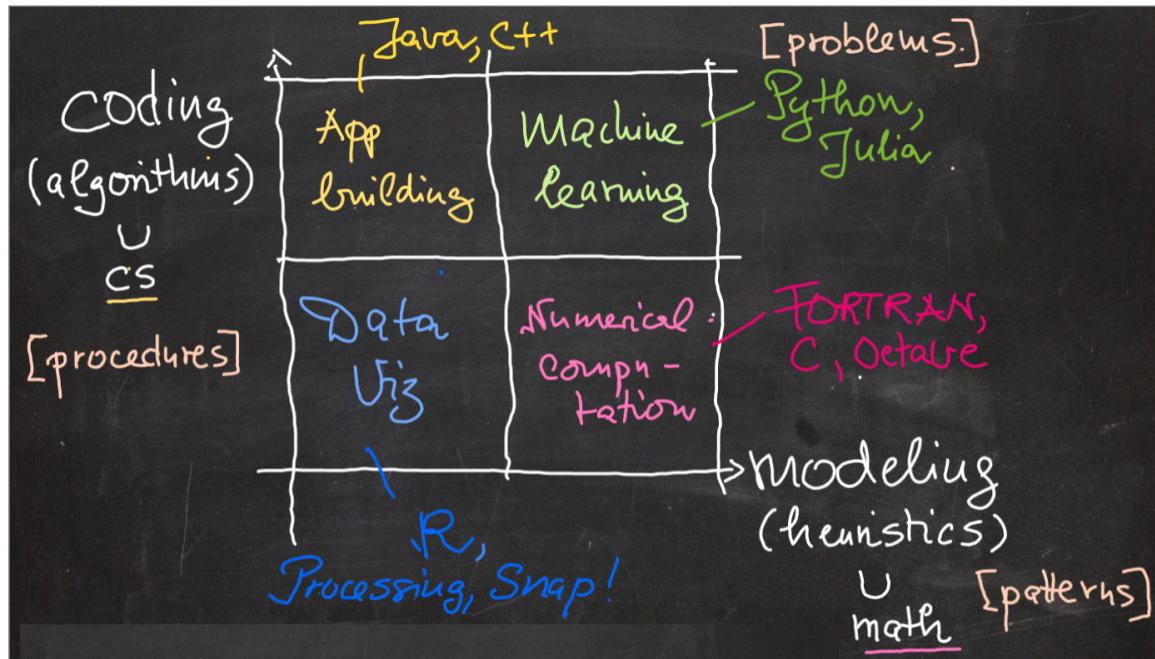 Java, C++
[problems.]
coding
(algorithms)
∪
CS
[procedures]
App
building
Machine
learning
Python,
Julia
Data
Viz
Numerical
compu-
tation
FORTRAN,
C, Octave
modeling
(heuristics)
∪
math
[patterns]
R,
Processing, Snap!